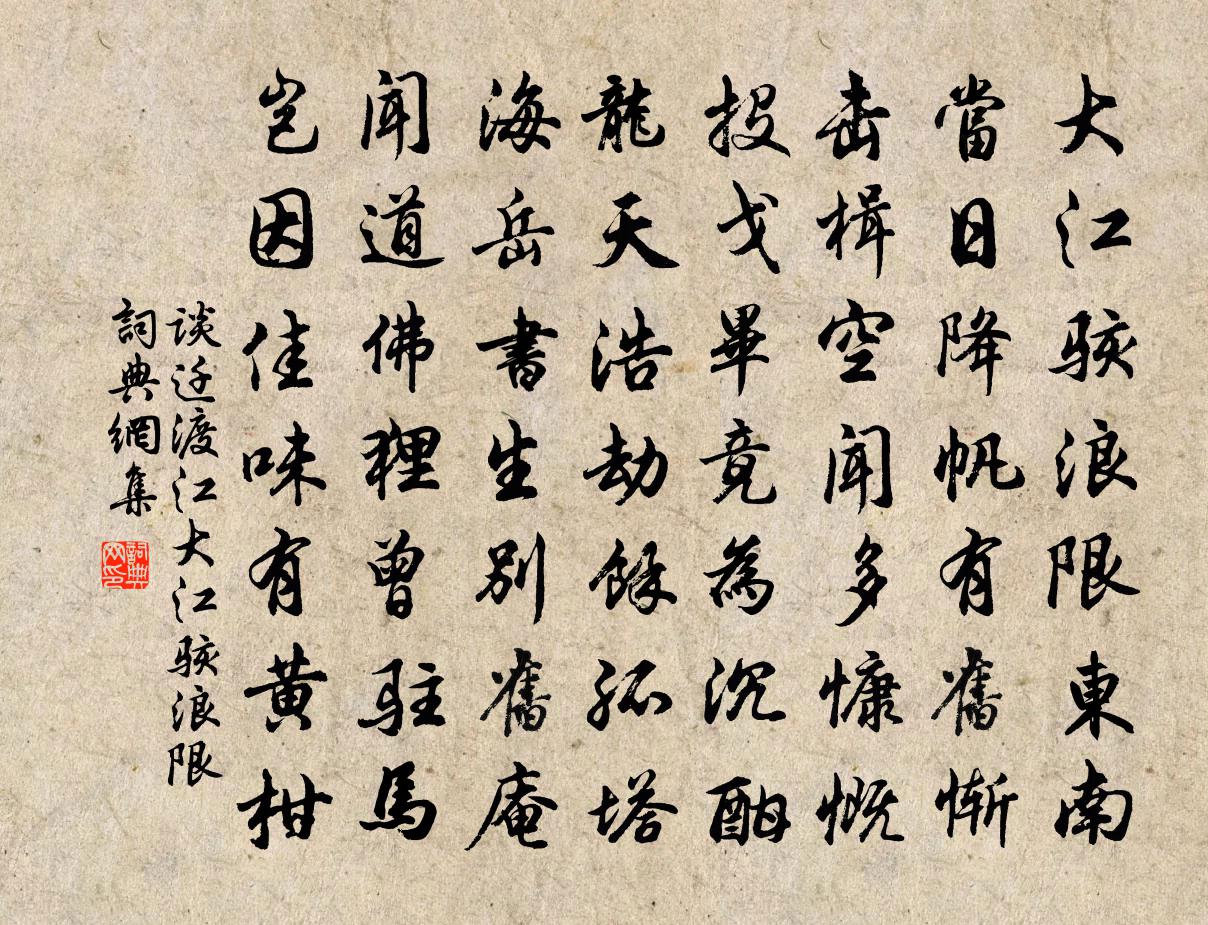 大江駭浪限東南
當日降帆有舊慚
击楫空聞多慷慨
投戈畢竟為沉酣
龍天浩劫餘孤塔
海岳書生別舊庵
聞道佛狸曾駐馬
豈因佳味有黃柑
談迁渡江大江駭浪限
詞典網集
詞典网印